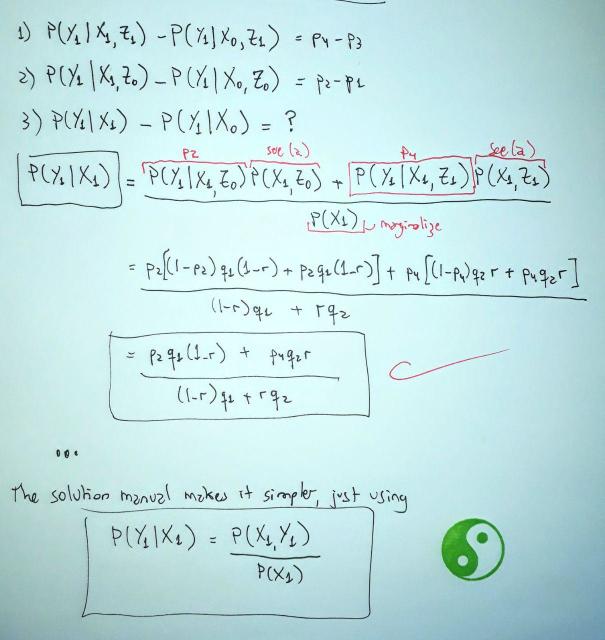 1) P(Y₁|X₁,Z₁) - P(Y₁|X₀,Z₁) = p₄-p₃
2) P(Y₁|X₁,Z₀) - P(Y₁|X₀,Z₀) = p₂-p₁
3) P(Y₁|X₁) - P(Y₁|X₀) = ?
p₂ see (a) p₄ see (a)
P(Y₁|X₁) = P(Y₁|X₁,Z₀) P(X₁,Z₀) + P(Y₁|X₁,Z₁) P(X₁,Z₁)
P(X₁) marginalize
= p₂[(1-p₂)q₁(1-r) + p₂q₁(1-r)] + p₄[(1-p₄)q₂r + p₄q₂r]
(1-r)q₁ + rq₂
= p₂q₁(1-r) + p₄q₂r
(1-r)q₁ + rq₂
...
The solution manual makes it simpler, just using
P(Y₁|X₁) = P(X₁,Y₁)
P(X₁)